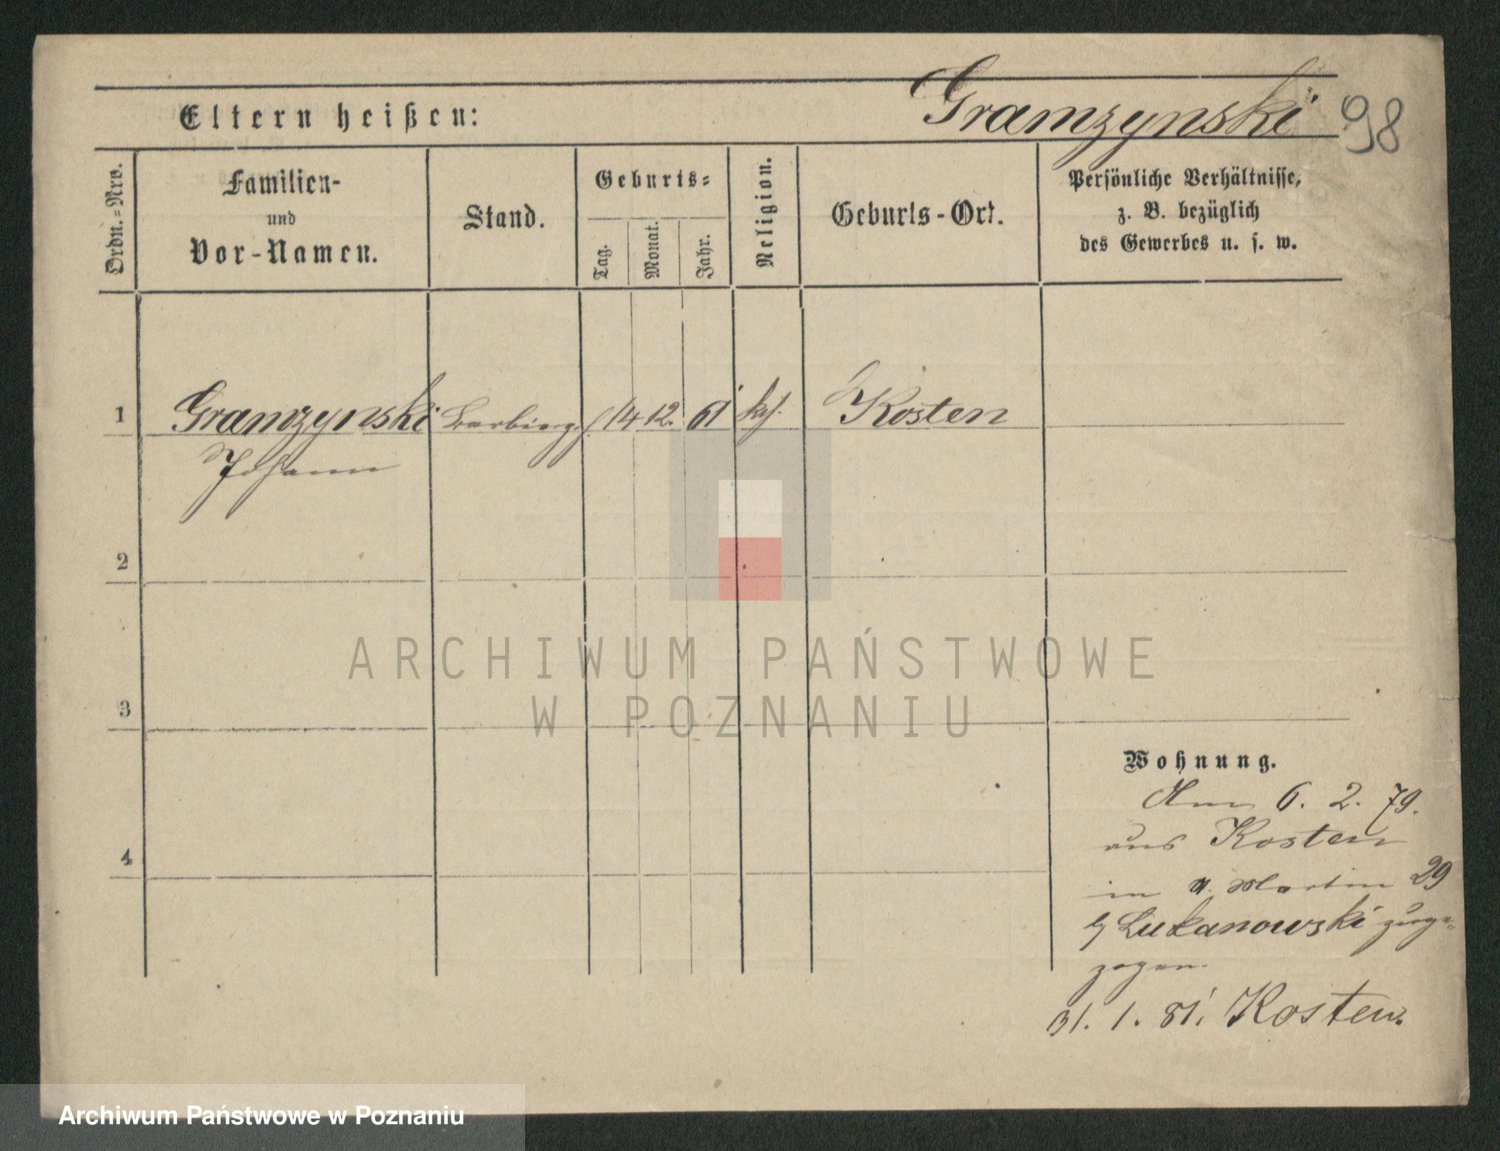 Gramzynski 98
Eltern heißen:
Ordn.-Nro.
Familien-
und
Vor-Namen.
Stand.
Geburts-
Tag.
Monat.
Jahr.
Religion.
Geburts-Ort.
Persönliche Verhältnisse,
z. B. bezüglich
des Gewerbes u. s. w.
1 Gramzynski 14 12. 61 kaf. Kosten
Johann
2
3
4
Wohnung.
Am 6. 2. 79.
aus Kosten
in Martin 29
Lukanowski zuge-
zogen.
31. 1. 81. Kosten.
ARCHIWUM PAŃSTWOWE
W POZNANIU
Archiwum Państwowe w Poznaniu